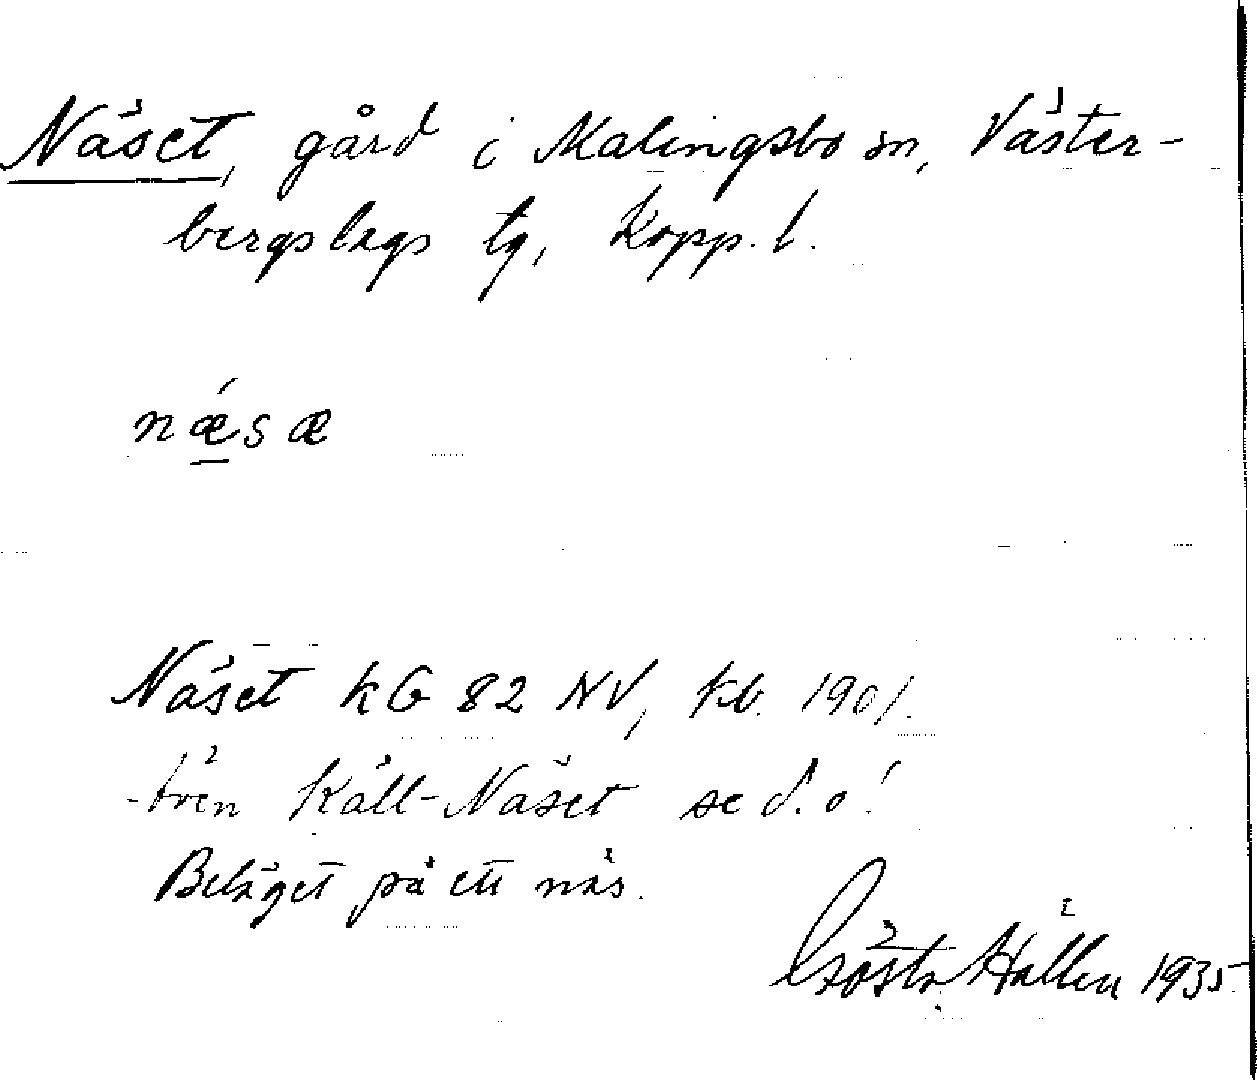 Näset, gård i Malingsbo sn, Väster-
bergslags tg, Kopp. l.
nǽ̲sæ
Näset KG 82 NV, kb. 1901.
även Käll-Näset se d. o!
Beläget på ett näs.
Gösta Hallén 1935